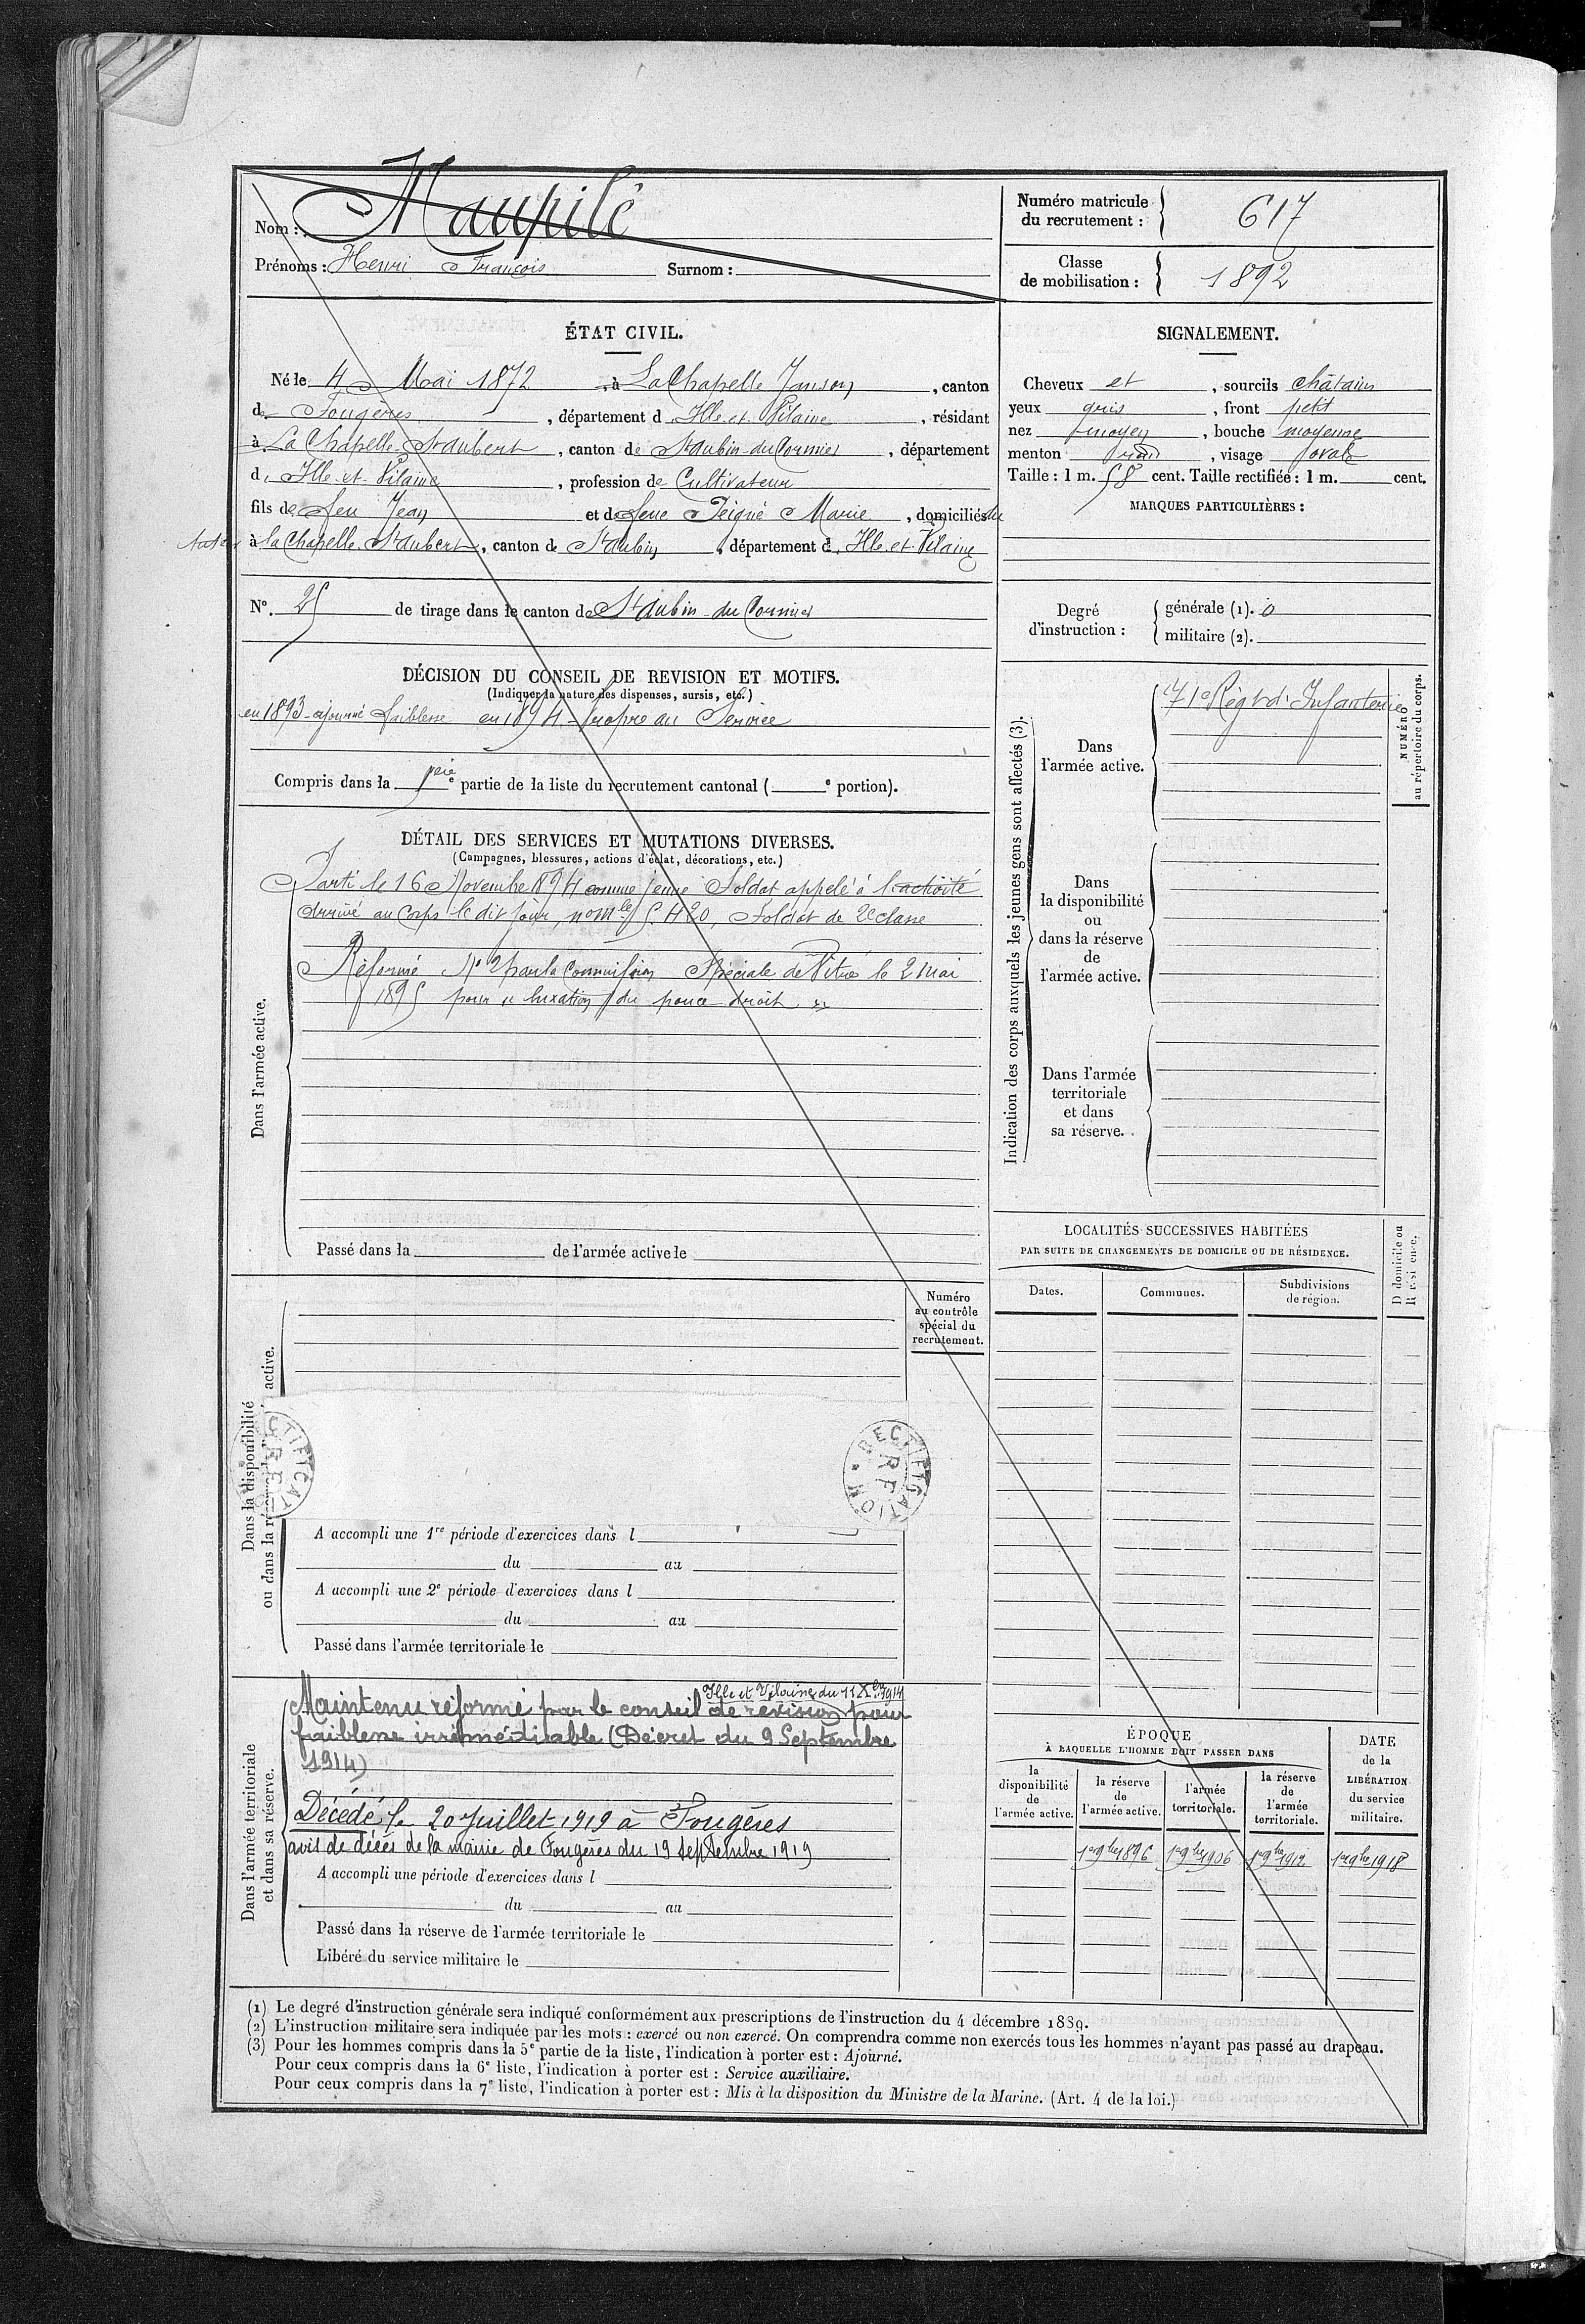 Nom : Maupilé
Prénoms : Henri François Surnom :
Numéro matricule du recrutement : 617
Classe de mobilisation : 1892
ÉTAT CIVIL.
Né le 4 Mai 1872, à La Chapelle Janson, canton
de Fougères, département d Ille et Vilaine, résidant
à La Chapelle St Aubert, canton de St Aubin du Cormier, département
d Ille et Vilaine, profession de Cultivateur
fils de feu Jean et de feue Peigné Marie, domiciliés
à la Chapelle St Aubert, canton de St Aubin, département d Ille et Vilaine
N°. 25 de tirage dans le canton de St Aubin du Cormier
SIGNALEMENT.
Cheveux et, sourcils châtains
yeux gris, front petit
nez moyen, bouche moyenne
menton rond, visage ovale
Taille : 1 m. 58 cent. Taille rectifiée : 1 m. cent.
MARQUES PARTICULIÈRES :
Degré d'instruction : générale (1). 0
militaire (2).
DÉCISION DU CONSEIL DE REVISION ET MOTIFS.
(Indiquer la nature des dispenses, sursis, etc.)
en 1893 ajourné faiblesse en 1894 propre au Service
Compris dans la 1ère partie de la liste du recrutement cantonal ( e portion).
DÉTAIL DES SERVICES ET MUTATIONS DIVERSES.
(Campagnes, blessures, actions d'éclat, décorations, etc.)
Dans l'armée active.
Parti le 16 Novembre 1894 comme jeune Soldat appelé à l'activité
Arrivé au Corps le dit jour, no mle 5420, Soldat de 2e classe
Réformé No 2 par la Commission Spéciale de Vitré le 2 Mai
1895 pour "luxation du pouce droit"
Passé dans la de l'armée active le
Indication des corps auxquels les jeunes gens sont affectés (3).
Dans l'armée active.
71e Régt d'Infanterie
NUMÉRO au répertoire du corps.
Dans la disponibilité ou dans la réserve de l'armée active.
Dans l'armée territoriale et dans sa réserve.
LOCALITÉS SUCCESSIVES HABITÉES
PAR SUITE DE CHANGEMENTS DE DOMICILE OU DE RÉSIDENCE.
Dates. Communes. Subdivisions de région. D domicile ou R résidence.
Numéro au contrôle spécial du recrutement.
Dans la disponibilité ou dans la ré active.
RECTIFICATION RF
A accompli une 1re période d'exercices dans l
du au
A accompli une 2e période d'exercices dans l
du au
Passé dans l'armée territoriale le
Dans l'armée territoriale et dans sa réserve.
Ille et Vilaine du 11 Xbre 1914
Maintenu réformé par le conseil de revision pour
faiblesse irrémédiable (Décret du 9 Septembre
1914)
Décédé le 20 Juillet 1919 à Fougères
avis de décès de la mairie de Fougères du 19 Septembre 1919
A accompli une période d'exercices dans l
du au
Passé dans la réserve de l'armée territoriale le
Libéré du service militaire le
ÉPOQUE
À LAQUELLE L'HOMME DOIT PASSER DANS
la disponibilité de l'armée active. la réserve de l'armée active. l'armée territoriale. la réserve de l'armée territoriale.
DATE de la LIBÉRATION du service militaire.
1er 9bre 1896 1er 9bre 1906 1er 9bre 1912 1er 9bre 1918
(1) Le degré d'instruction générale sera indiqué conformément aux prescriptions de l'instruction du 4 décembre 1889.
(2) L'instruction militaire sera indiquée par les mots : exercé ou non exercé. On comprendra comme non exercés tous les hommes n'ayant pas passé au drapeau.
(3) Pour les hommes compris dans la 5e partie de la liste, l'indication à porter est : Ajourné.
Pour ceux compris dans la 6e liste, l'indication à porter est : Service auxiliaire.
Pour ceux compris dans la 7e liste, l'indication à porter est : Mis à la disposition du Ministre de la Marine. (Art. 4 de la loi.)